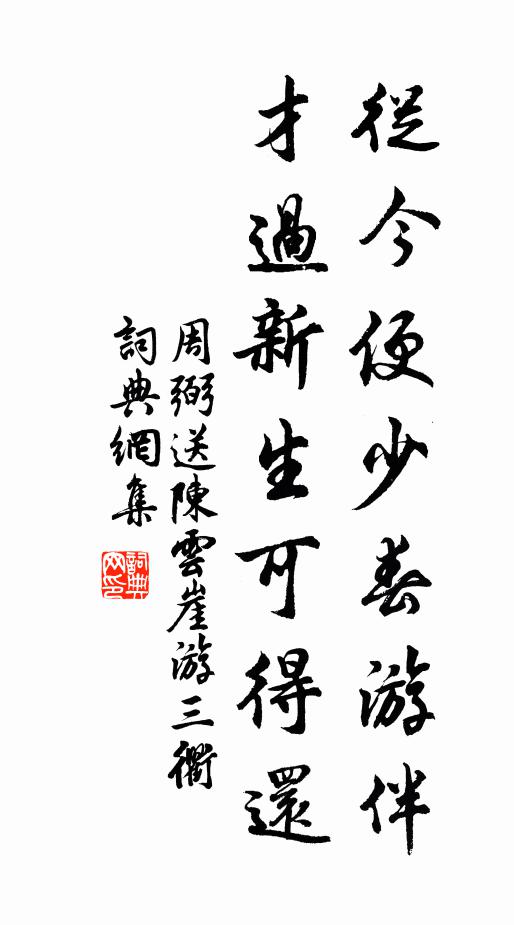 從今便少春游伴
才過新生可得還
周弼送陳雲崖游三衢
詞典網集
詞典网印